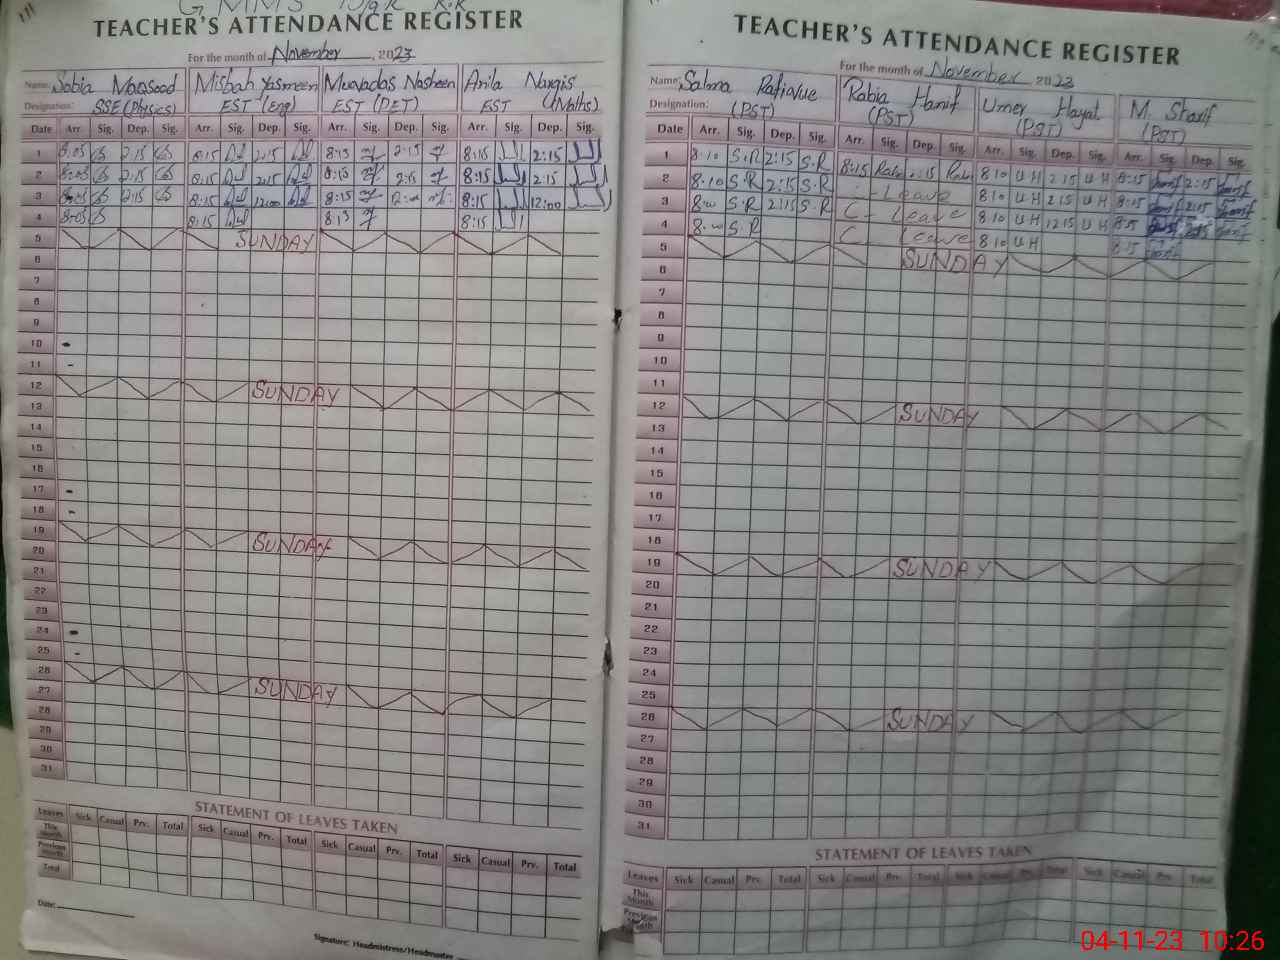 TEACHER'S ATTENDANCE REGISTER
For the month of November, 2023
Name: Sabia Maqsood Misbah Yasmeen Muqadas Nasheen Anila Nargis
Designation: SSE (Physics) EST (Eng) EST (PET) EST (Maths)
Date Arr. Sig. Dep. Sig. Arr. Sig. Dep. Sig. Arr. Sig. Dep. Sig. Arr. Sig. Dep. Sig.
1 8:05 2:15 8:15 2:15 8:13 2:15 8:15 2:15
2 8:05 2:15 8:15 2:15 8:15 2:15 8:15 2:15
3 8:05 2:15 8:15 12:00 8:15 8:15 12:00
4 8:05 8:15 8:13 8:15
5 SUNDAY
6
7
8
9
10
11
12 SUNDAY
13
14
15
16
17
18
19 SUNDAY
20
21
22
23
24
25
26 SUNDAY
27
28
29
30
31
STATEMENT OF LEAVES TAKEN
Leaves Sick Casual Prv. Total Sick Casual Prv. Total Sick Casual Prv. Total Sick Casual Prv. Total
This Month
Previous Month
Total
Date:
Signature: Headmistress/Headmaster
TEACHER'S ATTENDANCE REGISTER
For the month of November 2023
Name: Salma Rabia Hanif Umer Hayat M. Sharif
Designation: (PST) (PST) (PST) (PST)
Date Arr. Sig. Dep. Sig. Arr. Sig. Dep. Sig. Arr. Sig. Dep. Sig. Arr. Sig. Dep. Sig.
1 8:10 S.R 2:15 S.R 8:15 Rabi 2:15 Rabi 8 10 U H 2 15 U H 8:15 2:15
2 8:10 S.R 2:15 S.R Leave 8 10 U H 2 15 U H 8:15 2:15
3 S.R 2:15 S.R C - Leave 8 10 U H 12 15 U H
4 S.R C - Leave 8 10 U H 8:15
5 SUNDAY
6
7
8
9
10
11
12 SUNDAY
13
14
15
16
17
18
19 SUNDAY
20
21
22
23
24
25
26 SUNDAY
27
28
29
30
31
STATEMENT OF LEAVES TAKEN
Leaves Sick Casual Prv. Total Sick Casual Prv. Total Sick Casual Prv. Total Sick Casual Prv. Total
This Month
Previous Month
04-11-23 10:26